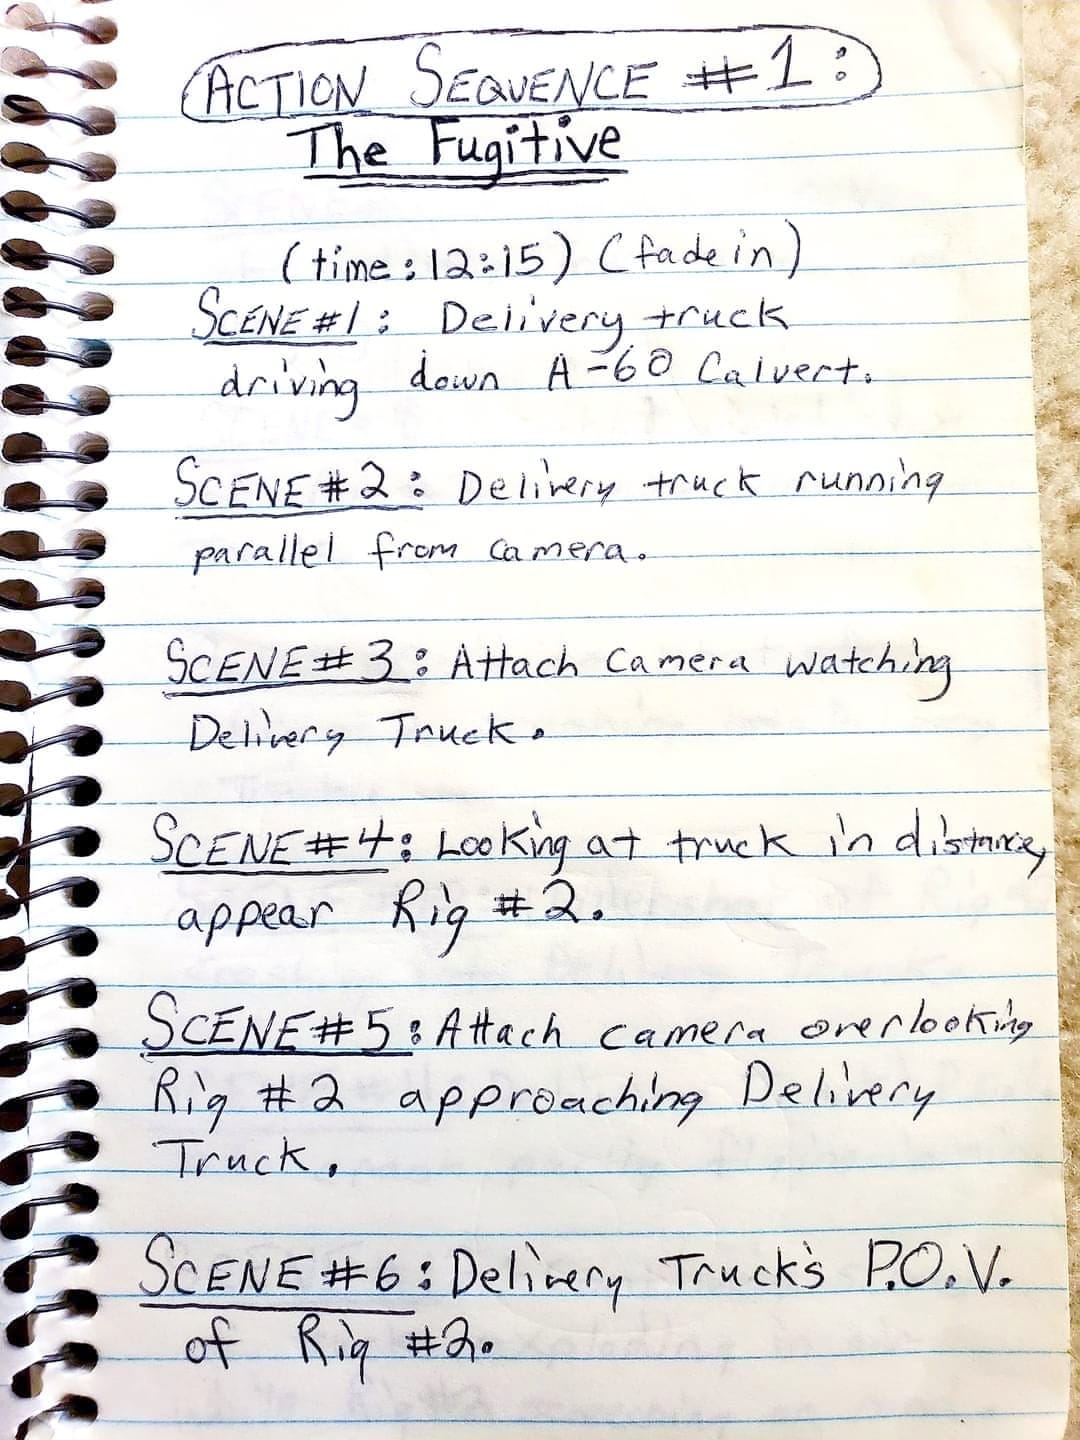 ACTION SEQUENCE #1:
The Fugitive
(time: 12:15) (fade in)
SCENE #1: Delivery truck
driving down A-60 Calvert.
SCENE #2: Delivery truck running
parallel from camera.
SCENE #3: Attach camera watching
Delivery Truck.
SCENE #4: Looking at truck in distance,
appear Rig #2.
SCENE #5: Attach camera overlooking
Rig #2 approaching Delivery
Truck.
SCENE #6: Delivery Truck's P.O.V.
of Rig #2.